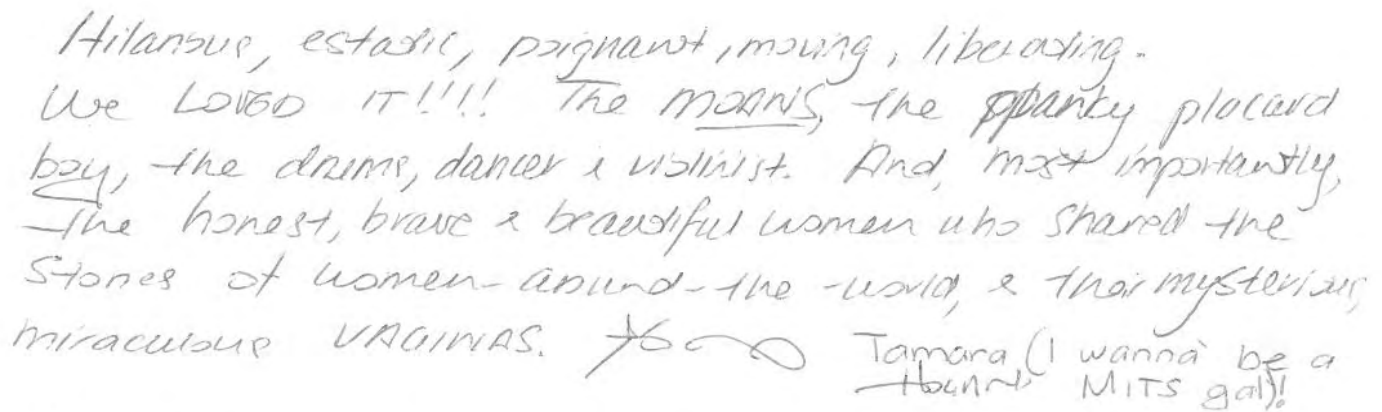 Hilarious, estatic, poignant, moving, liberating.
We LOVED IT!!!! The MOANS, the spanky placard
boy, the drums, dancer & violinist. And, most importantly,
the honest, brave & beautiful women who shared the
stories of women-around-the-world, & their mysterious,
miraculous VAGINAS.
Tamara (I wanna be a
MITS gal)!